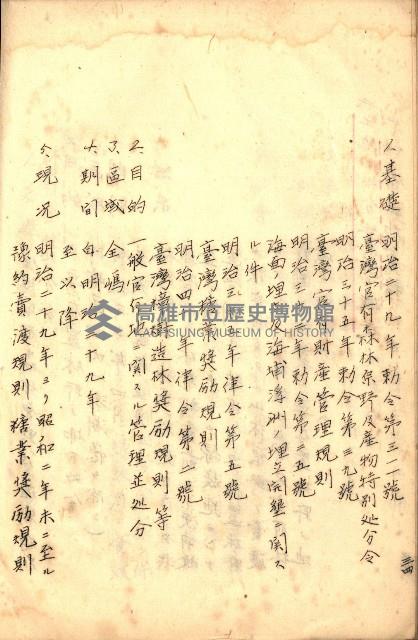 1、基礎 明治二十九年勅令第三一一號
臺灣官有森林原野及産物特別処分令
明治三十五年勅令第三九號
臺灣官有財産管理規則
明治三 年勅令第二五號
海面ノ埋 海埔浮洲ノ埋立開墾ニ関ス
ル件
明治三 五年律令第五號
臺灣糖業奨励規則
明治四 年律令第二號
臺灣 造林奨励規則 等
2、目的 一般官有地ニ関スル管理並処分
3、區域 全嶋
4、期間 自明治二十九年
至以降
5、現况 明治二十九年ヨリ昭和二年末ニ至ル
豫約賣渡規則、糖業奨励規則
三四
高雄市立歷史博物館
KAOHSIUNG MUSEUM OF HISTORY